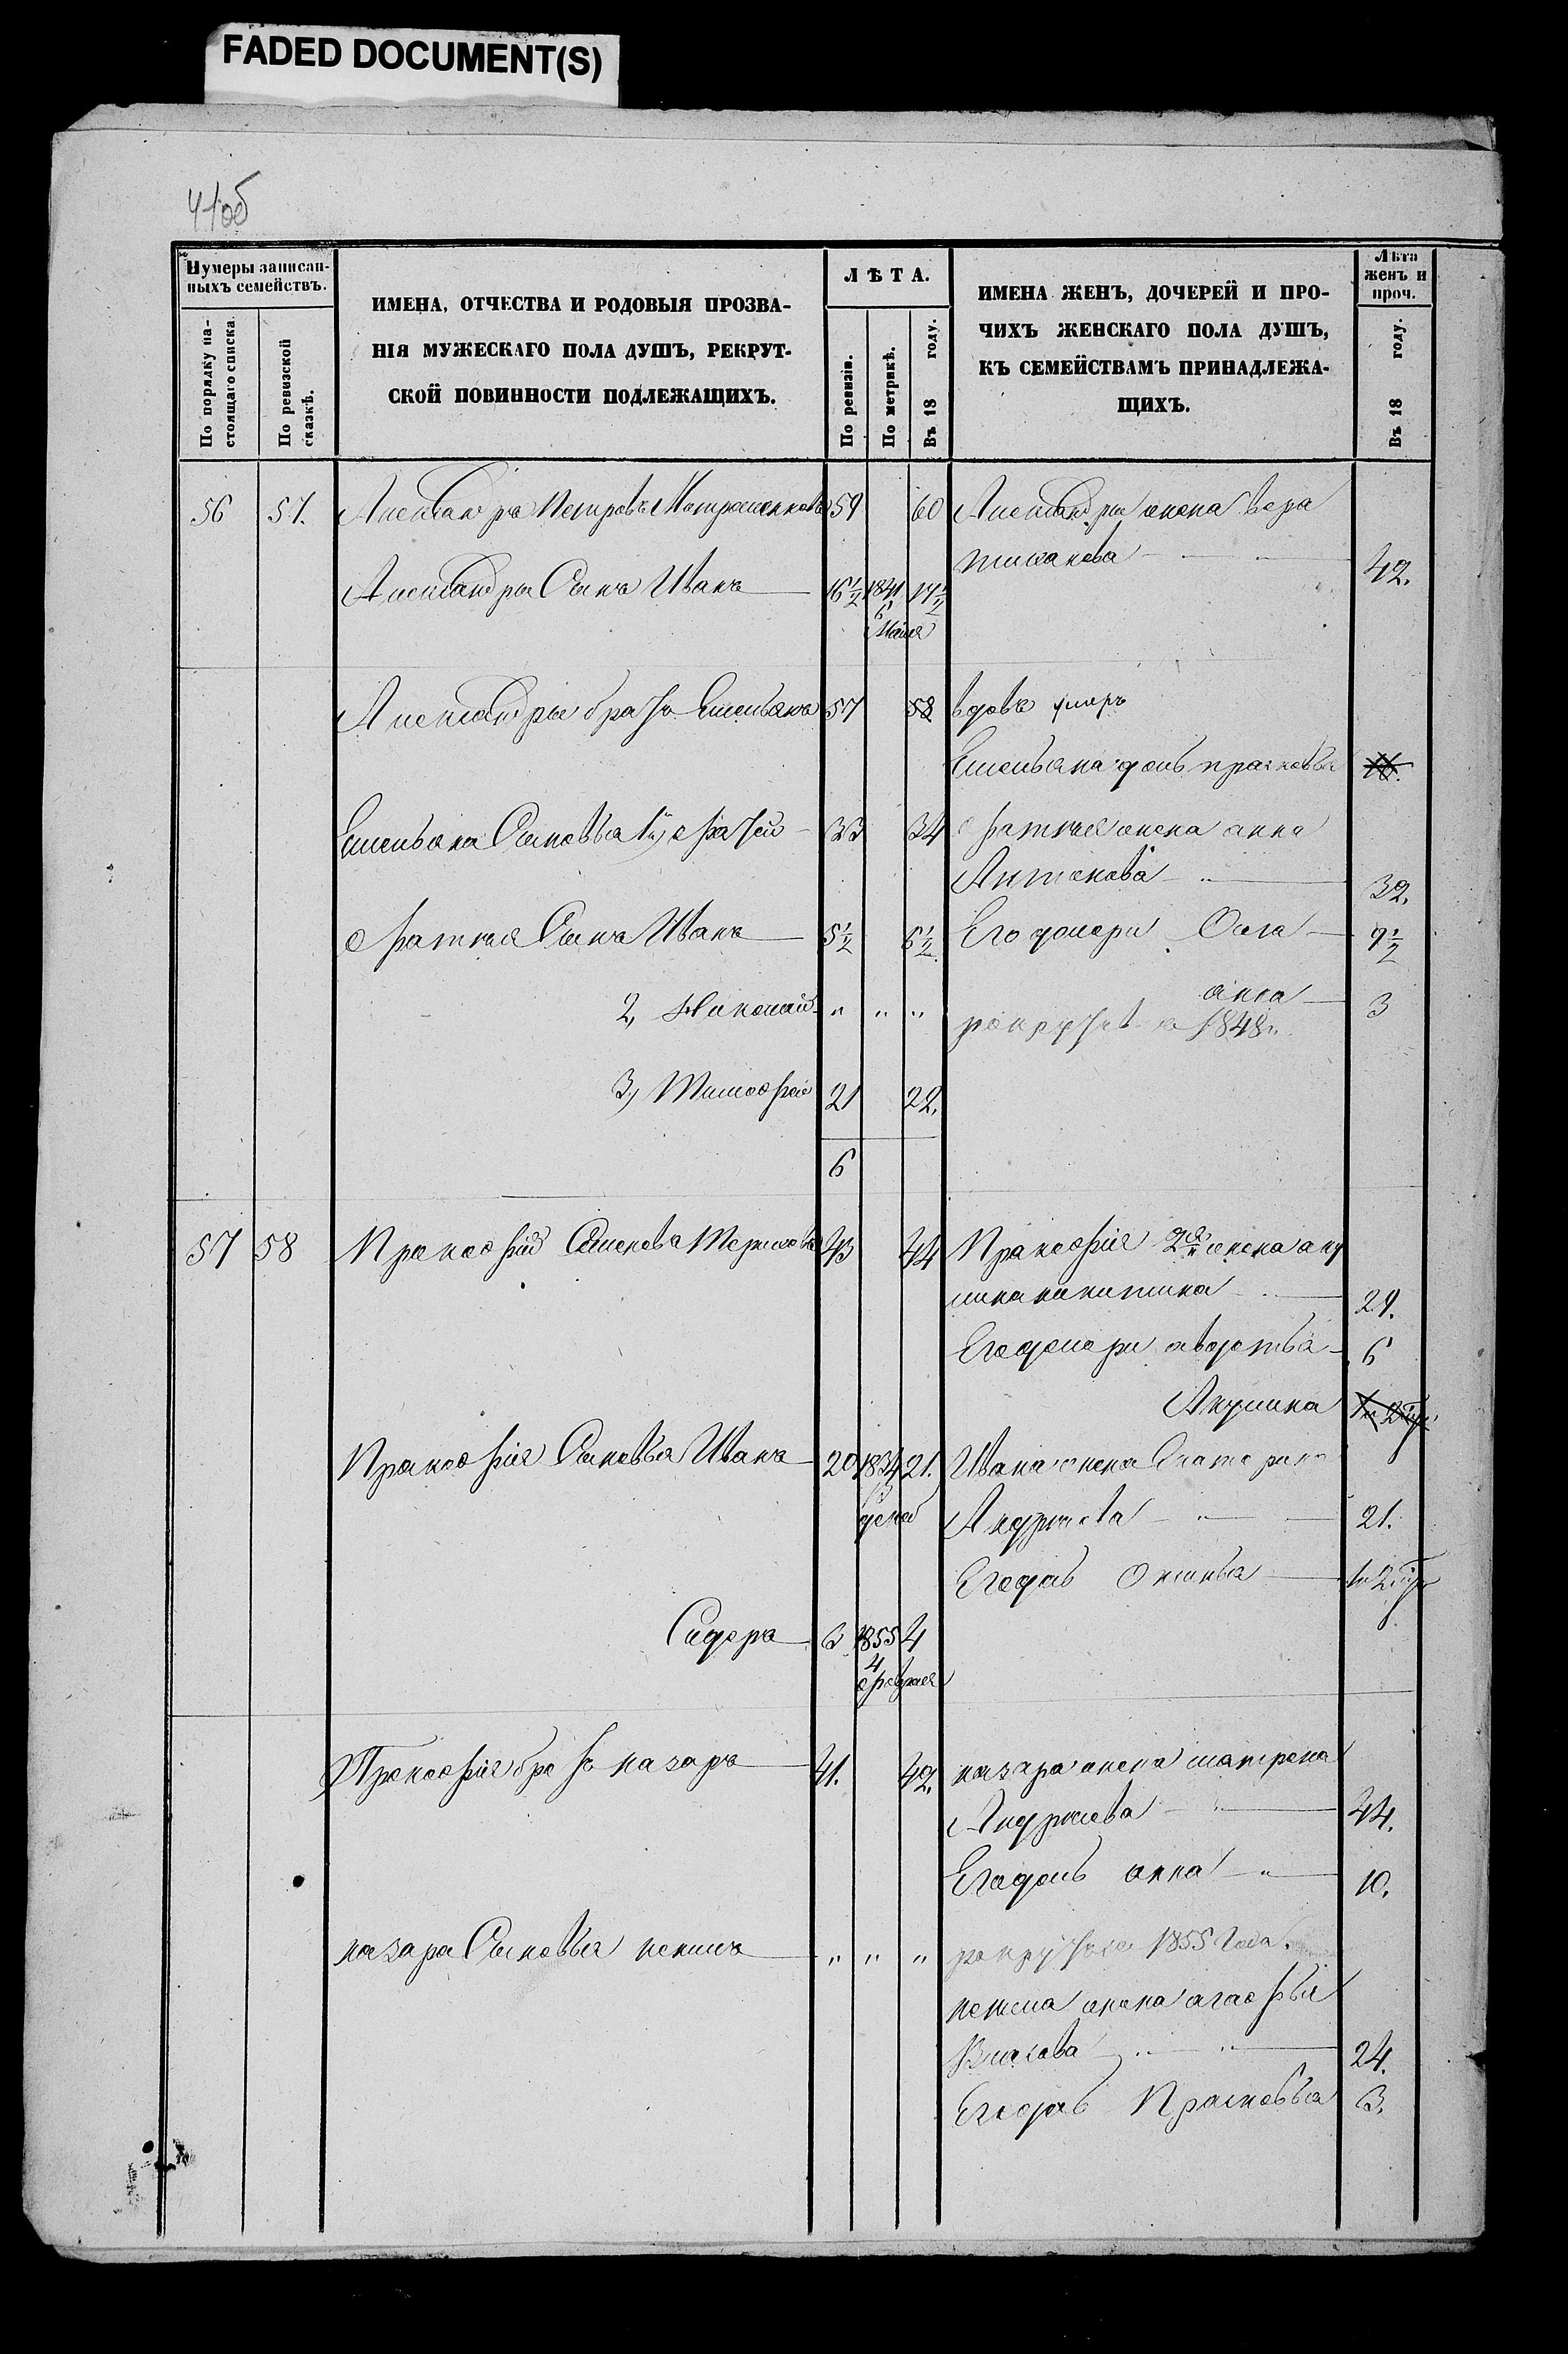 FADED DOCUMENT(S)
41об
Нумеры записан-
ныхъ семействъ.
По порядку на-
стоящаго списка.
По ревизской
сказкѣ.
ИМЕНА, ОТЧЕСТВА И РОДОВЫЯ ПРОЗВА-
НІЯ МУЖЕСКАГО ПОЛА ДУШЪ, РЕКРУТ-
СКОЙ ПОВИННОСТИ ПОДЛЕЖАЩИХЪ.
ЛѢТА.
По ревизіи.
По метрикѣ.
Въ 18 году.
ИМЕНА ЖЕНЪ, ДОЧЕРЕЙ И ПРО-
ЧИХЪ ЖЕНСКАГО ПОЛА ДУШЪ,
КЪ СЕМЕЙСТВАМЪ ПРИНАДЛЕЖА-
ЩИХЪ.
Лѣта
женъ и
проч.
Въ 18 году.
56 57. Александръ Петровъ 59 60 Александра жена вера
42.
Александра Сынъ Иванъ 16½ 1841 17½
6
Маія
Александра братъ Емельянъ 57 58 вдовъ умеръ
Емельяна дочь прасковья
Емельяна Сыновья 1й, Фатей 33 34 Фатея жена анна
Антонова 32.
Фатея Сынъ Иванъ 5½ 6½ Его дочери Олга 7½
анна 3
2, Николай " " " рекрутъ 1848
3, Тимофей 21 22.
6
57 58 Прокофій Семеновъ 43 44 Прокофія 2я жена аку
лина никитина 29.
Его дочери авдотья 6
Акулина
Прокофія Сыновья Иванъ 20 1834 21. Ивана жена Екатерина
Андреева 21.
Его дочь
Сидоръ 3 1855 4
4
февраля
Прокофія братъ назаръ 41. 42. назара жена матрена
Андреева 44.
Его дочь анна 10.
назара Сыновья " " " рекрутъ 1855 года.
жена агафья
Власова 24.
Его дочь Прасковья 3.